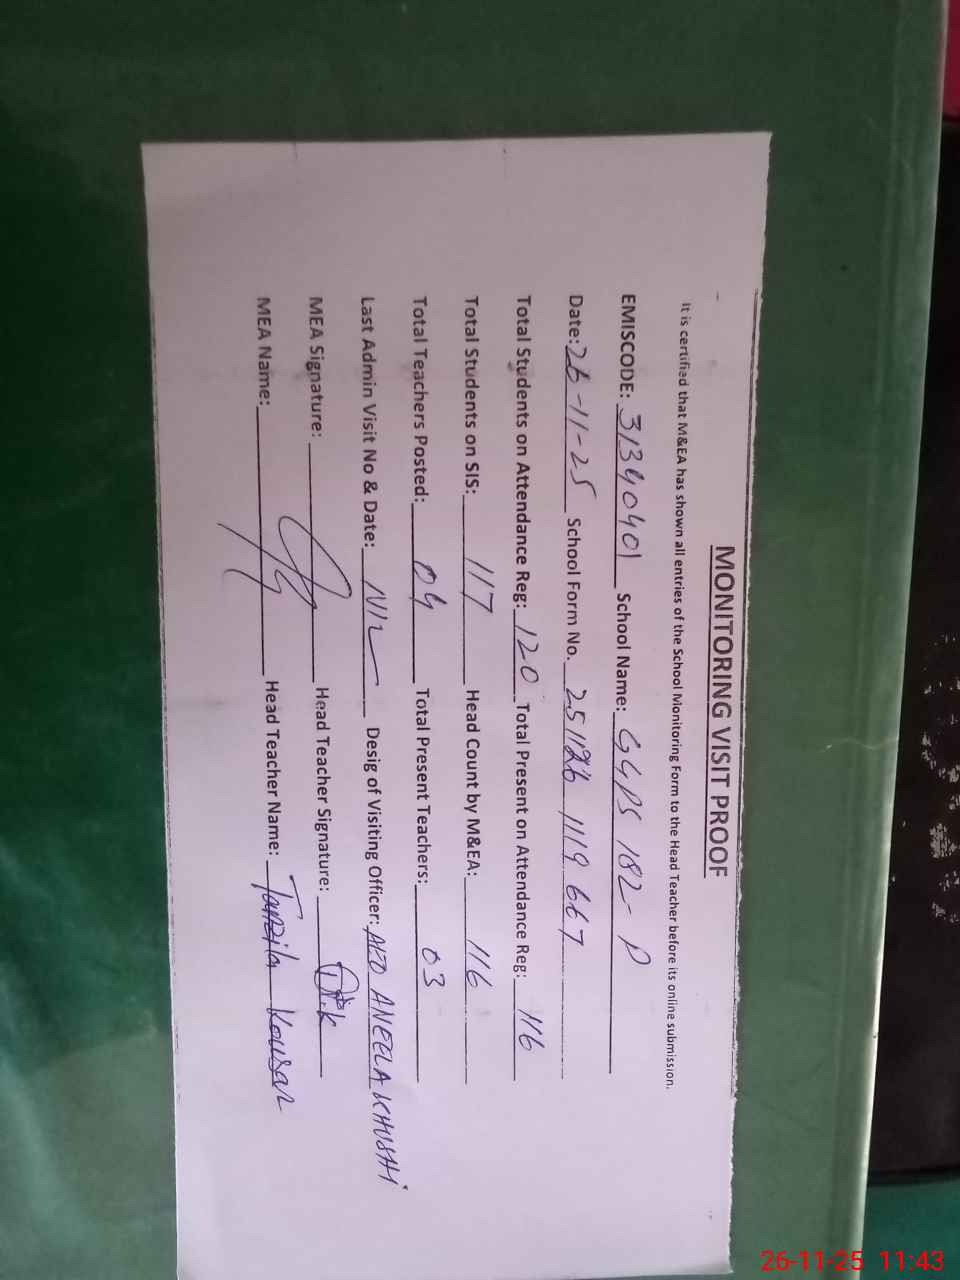 MONITORING VISIT PROOF
It is certified that M&EA has shown all entries of the School Monitoring Form to the Head Teacher before its online submission.
EMISCODE: 31340401 School Name: GGPS 182-P
Date: 26-11-25 School Form No. 251126 1119 667
Total Students on Attendance Reg: 120 Total Present on Attendance Reg: 116
Total Students on SIS: 117 Head Count by M&EA: 116
Total Teachers Posted: 04 Total Present Teachers: 03
Last Admin Visit No & Date: NIL Desig of Visiting Officer: AEO ANEELA KHUSHI
MEA Signature: Head Teacher Signature:
MEA Name: Head Teacher Name: Tanzila Kousar
26-11-25 11:43